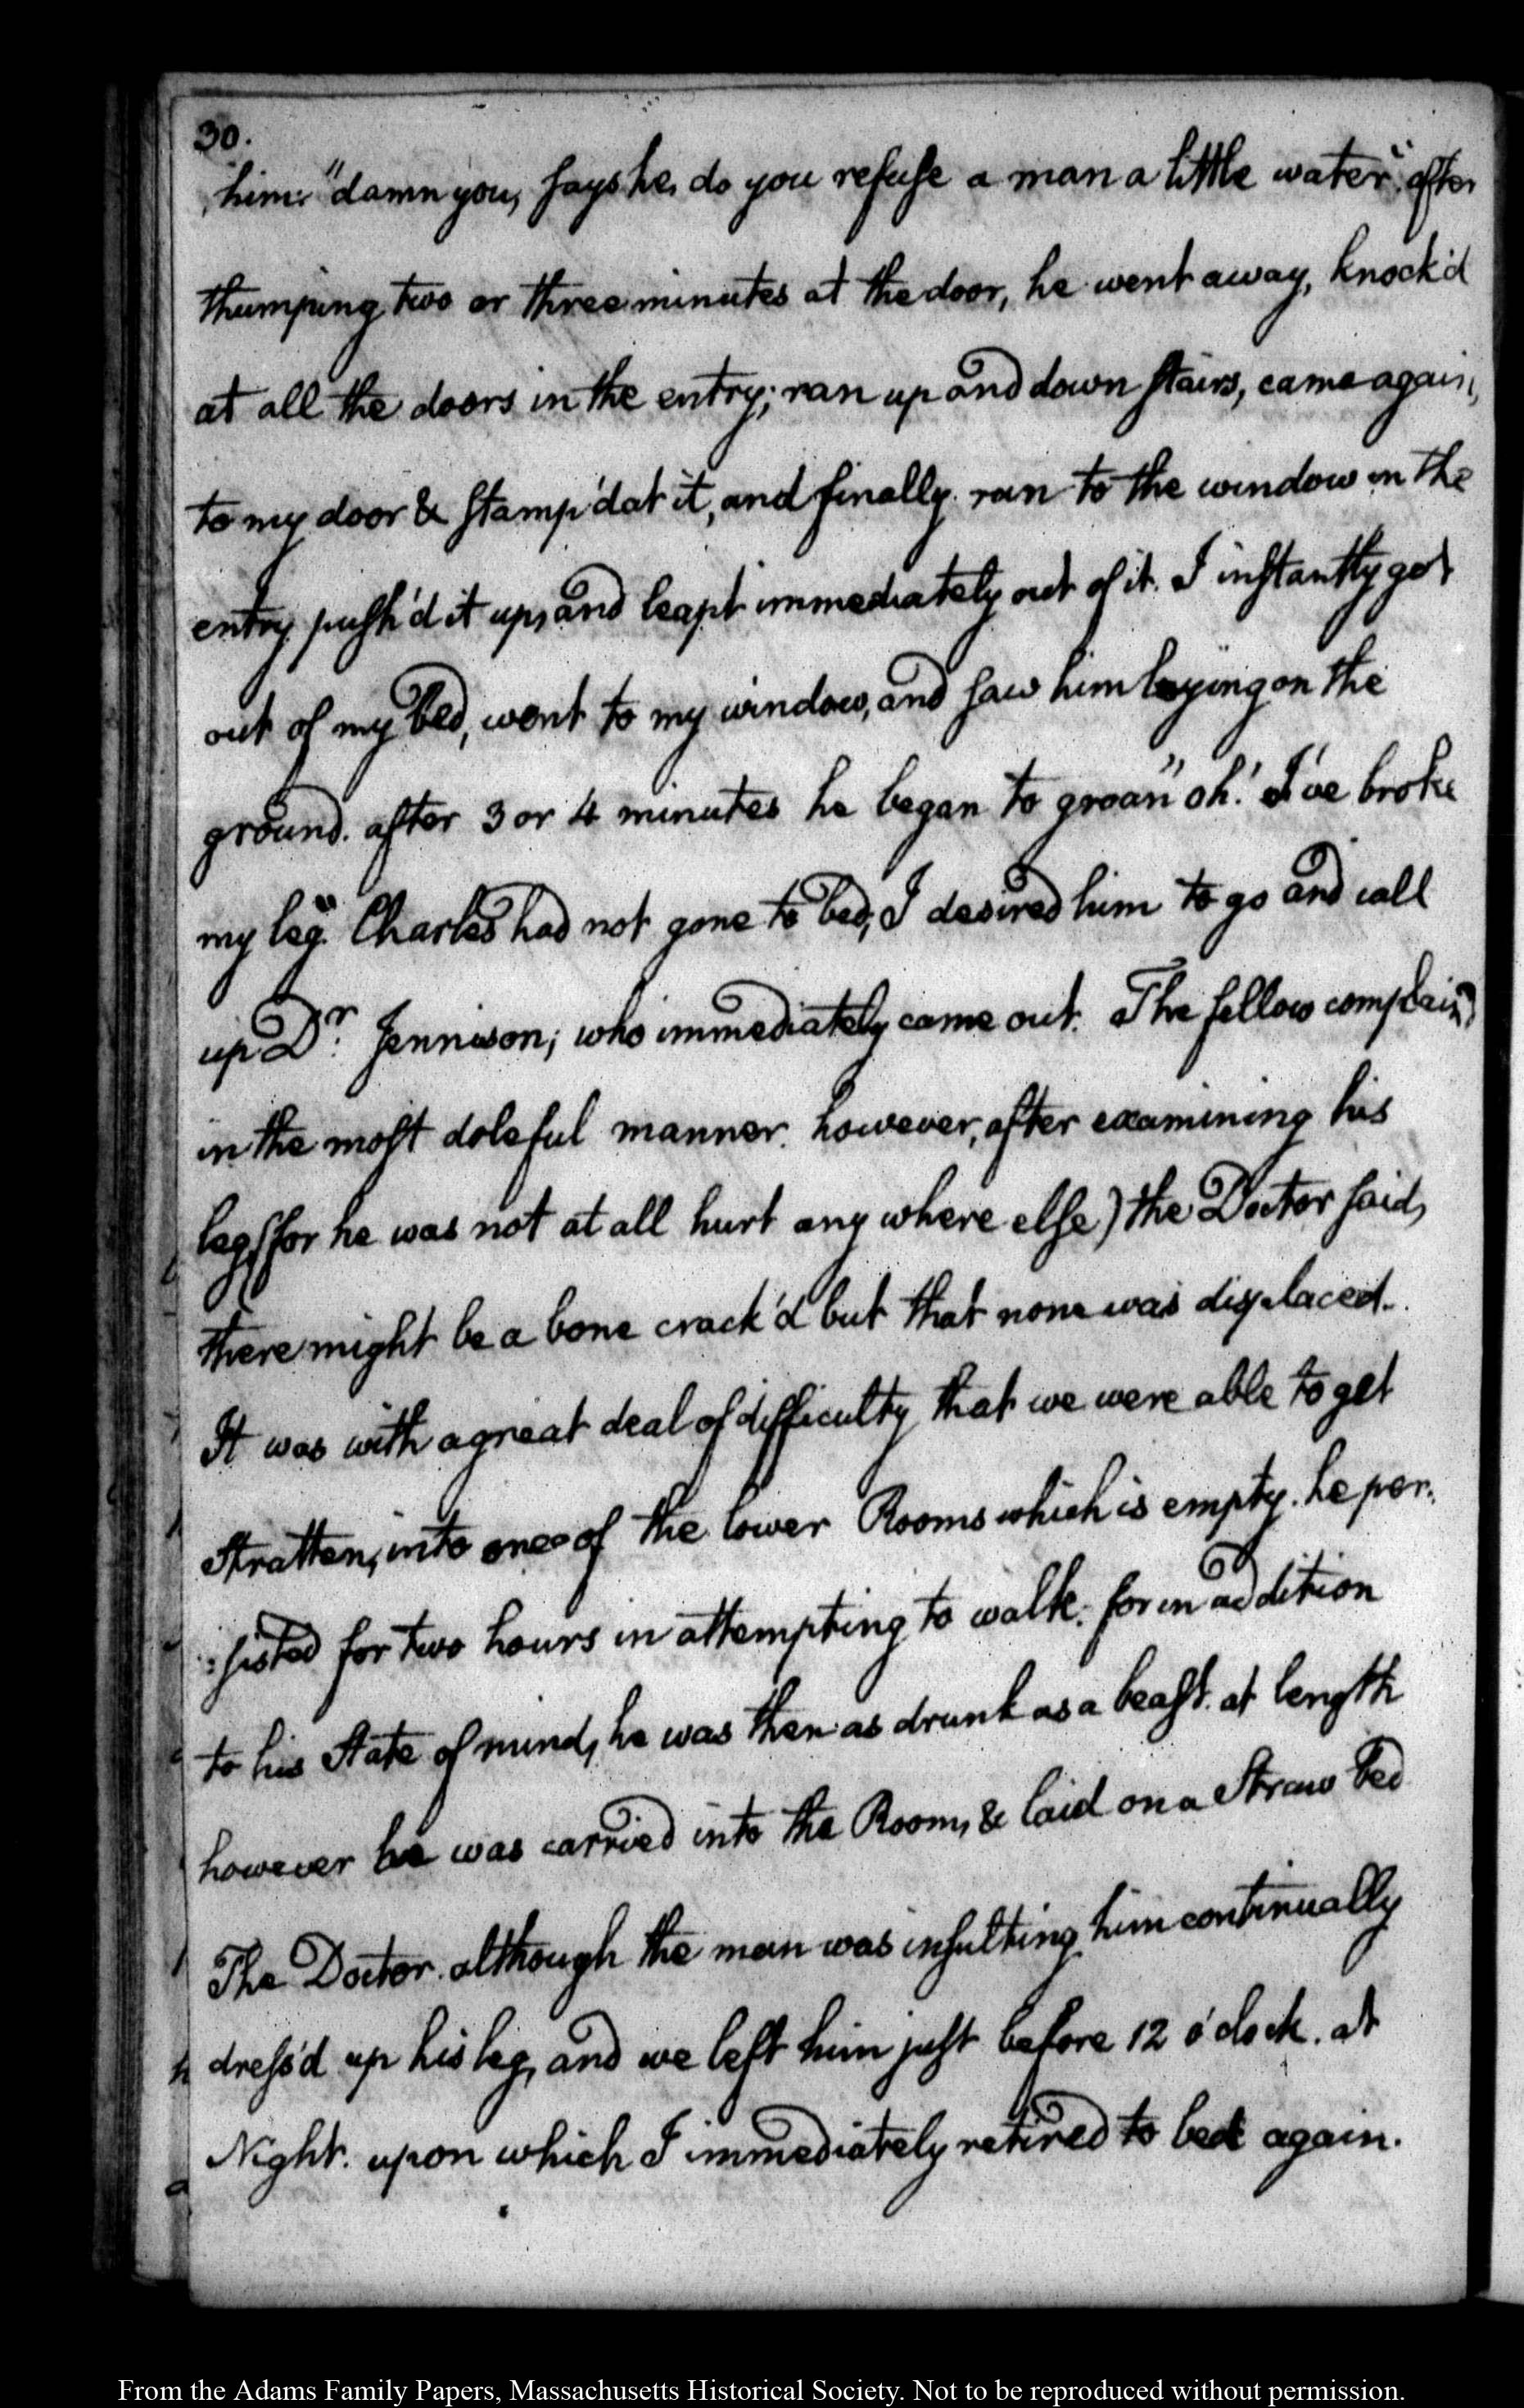 30.
him: "damn you, says he, do you refuse a man a little water." after
thumping two or three minutes at the door, he went away, knock'd
at all the doors in the entry; ran up and down stairs, came again,
to my door & stamp'd at it, and finally ran to the window in the
entry, push'd it up, and leapt immediately out of it. I instantly got
out of my bed, went to my window, and saw him laying on the
ground. after 3 or 4 minutes he began to groan "oh! I've broke
my leg." Charles had not gone to bed, I desired him to go and call
up Dr. Jennison; who immediately came out. The fellow complain'd
in the most doleful manner. however, after examining his
leg, (for he was not at all hurt any where else) the Doctor said,
there might be a bone crack'd but that none was displaced.
It was with a great deal of difficulty that we were able to get
Stratten, into one of the lower Rooms which is empty. he per-
:sisted for two hours in attempting to walk. for in addition
to his State of mind, he was then as drunk as a beast. at length
however he was carried into the Room, & laid on a Straw bed
The Doctor although the man was insulting him continually
dress'd up his leg, and we left him just before 12 o'clock. at
Night. upon which I immediately retired to bed again.
From the Adams Family Papers, Massachusetts Historical Society. Not to be reproduced without permission.